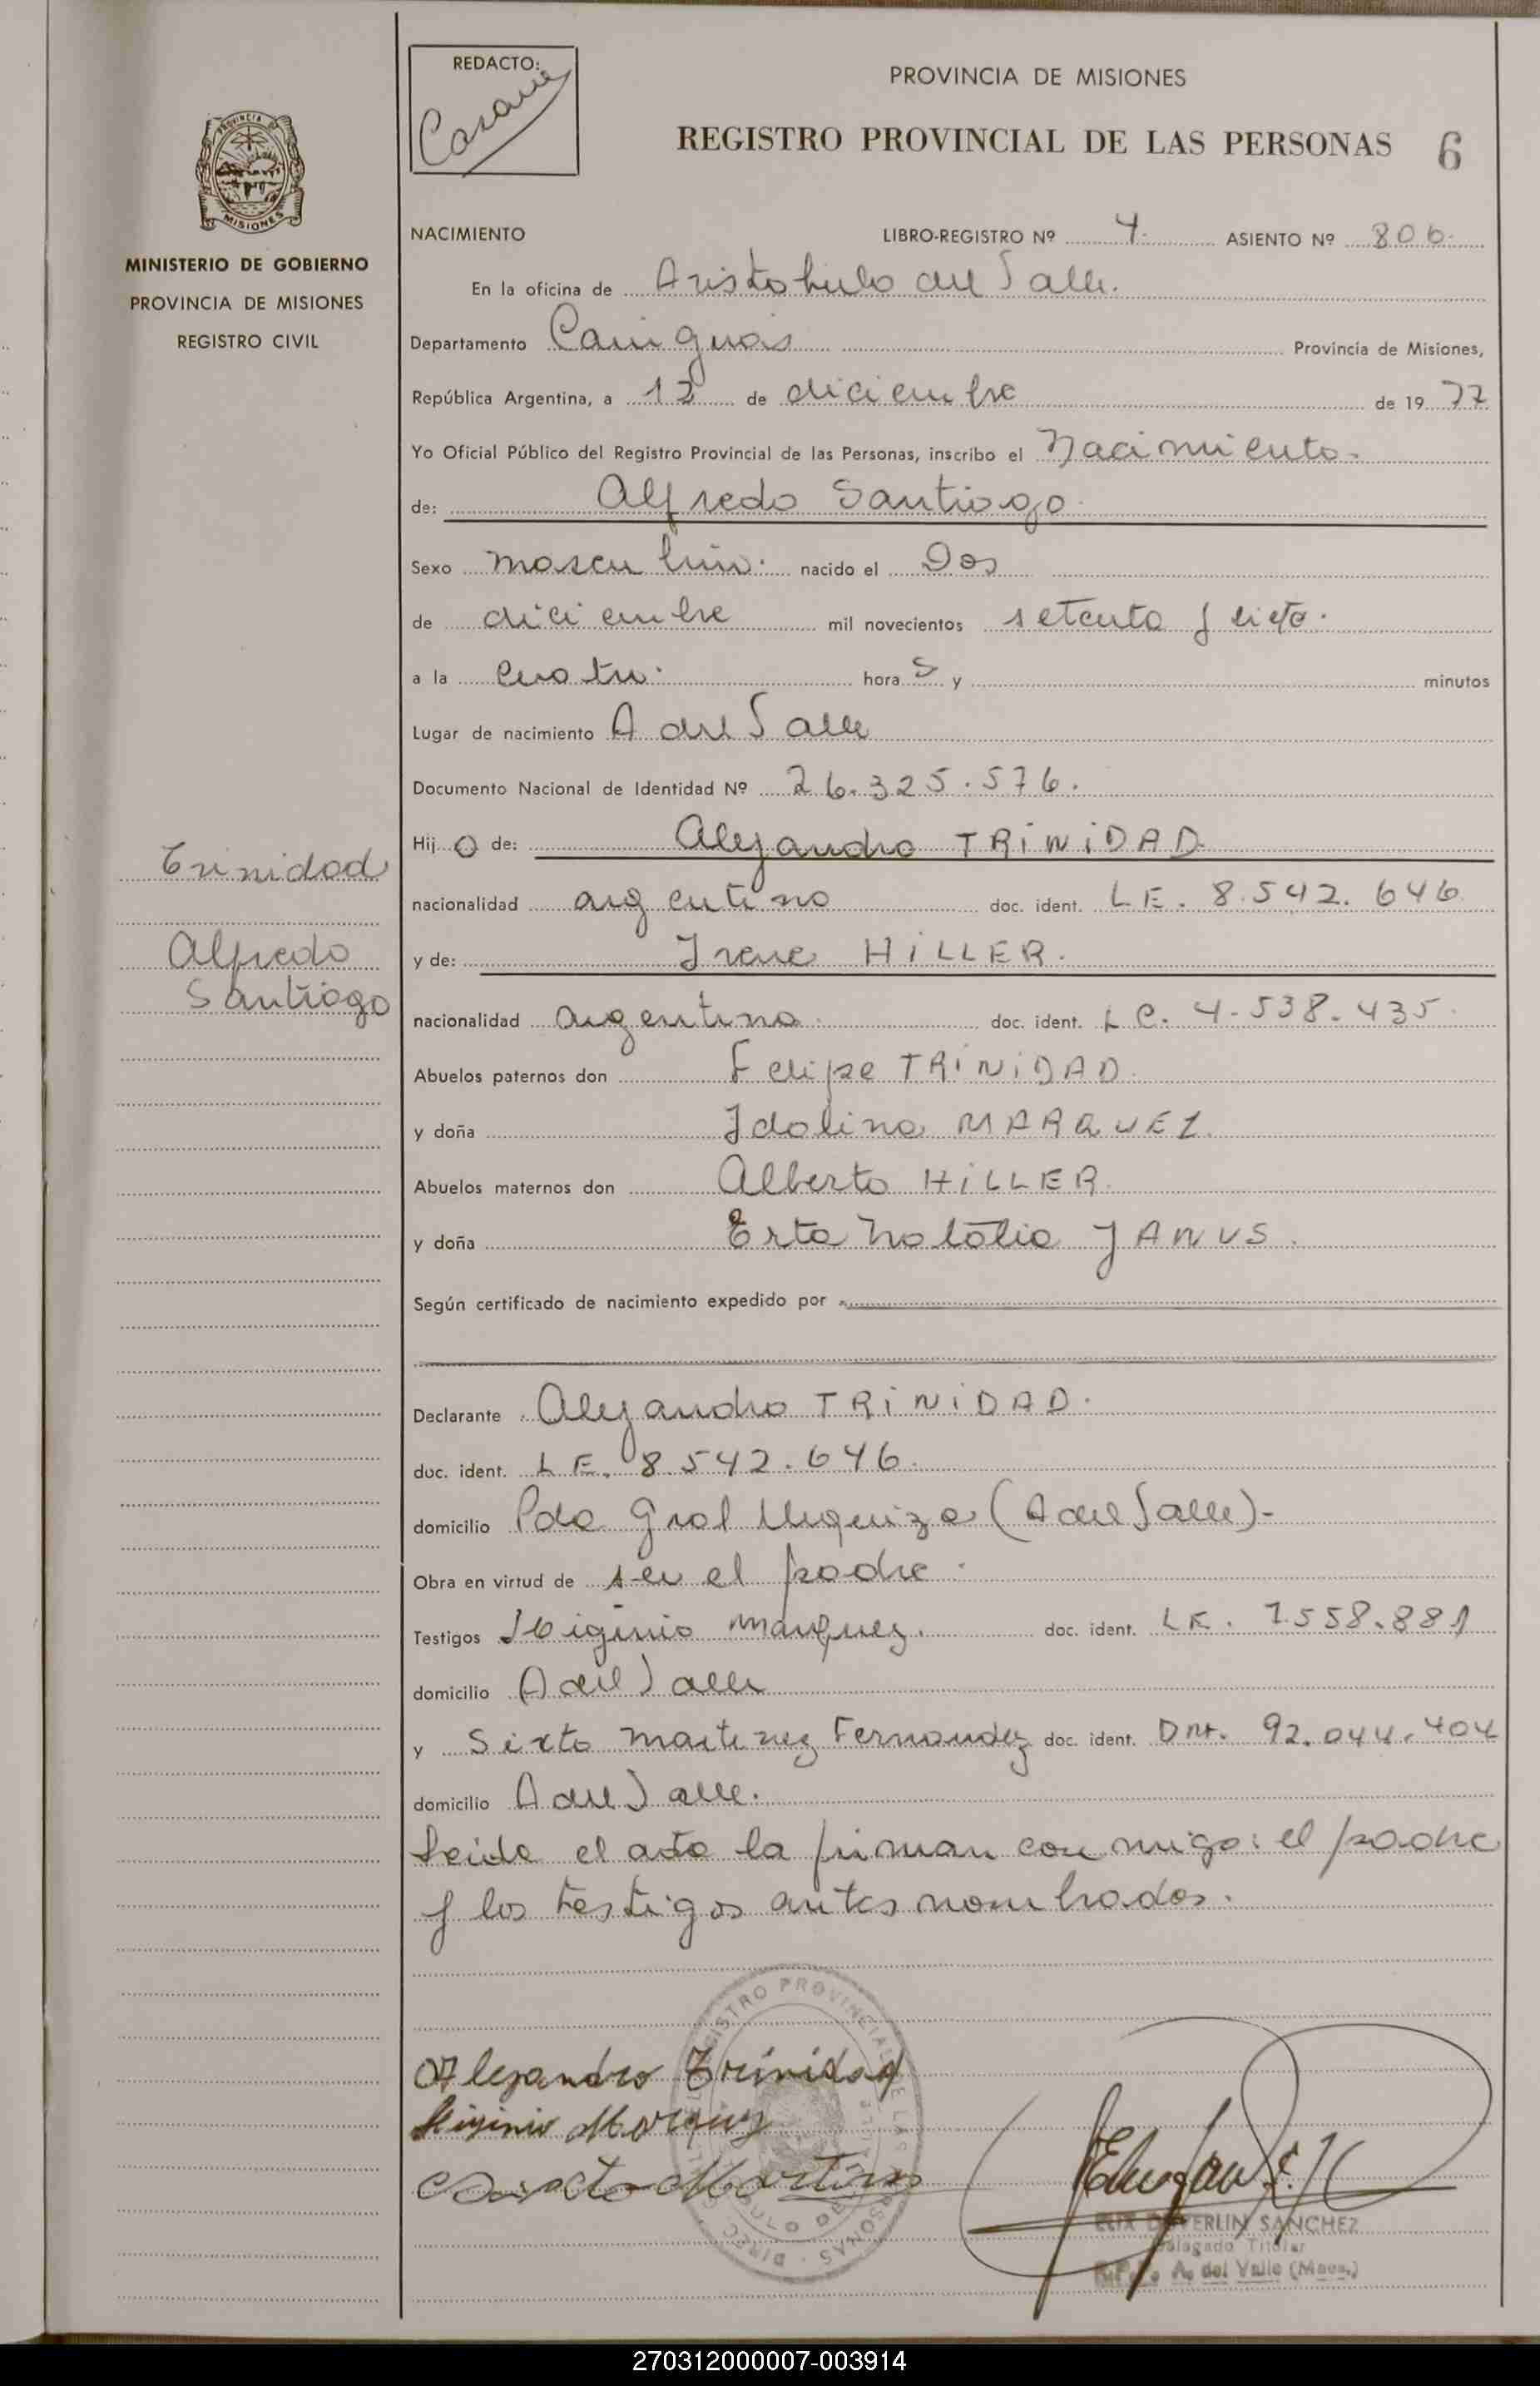 REDACTO:
PROVINCIA DE MISIONES
REGISTRO PROVINCIAL DE LAS PERSONAS 6
PROVINCIA
MISIONES
MINISTERIO DE GOBIERNO
PROVINCIA DE MISIONES
REGISTRO CIVIL
NACIMIENTO LIBRO-REGISTRO Nº 4 ASIENTO Nº 806
En la oficina de Aristobulo del Valle.
Departamento Cainguas Provincia de Misiones,
República Argentina, a 12 de diciembre de 19 77
Yo Oficial Público del Registro Provincial de las Personas, inscribo el Nacimiento.
de: Alfredo Santiago
Sexo masculino. nacido el Dos
de diciembre mil novecientos setenta y siete.
a la cuatro. hora s y minutos
Lugar de nacimiento A del Valle
Documento Nacional de Identidad Nº 26.325.576.
Hij o de: Alejandro TRiNiDAD
nacionalidad argentino doc. ident. L.E. 8.542.646
y de: Irene HiLLER.
nacionalidad argentina. doc. ident. L C. 4.538.435
Abuelos paternos don Felipe TRiNiDAD
y doña Idolina MARQUEZ.
Abuelos maternos don Alberto HiLLER
y doña Erta Natalia JANUS.
Según certificado de nacimiento expedido por
Trinidad
Alfredo
Santiago
Declarante Alejandro TRiNiDAD.
doc. ident. L.E. 8.542.646.
domicilio Pdo Gral Urquiza (A del Valle)-
Obra en virtud de ser el padre.
Testigos Higinio Marquez. doc. ident. L.E. 7.558.881
domicilio A del Valle
y Sixto Martinez Fernandez doc. ident. DNI. 92.044.404
domicilio A del Valle.
Leida el acta la firman con migo: el padre
y los testigos antes nombrados.
Alejandro Trinidad
Higinio Marquez
Sixto Martines
SANCHEZ
Delegado Titular
A. del Valle (Mnes.)
270312000007-003914